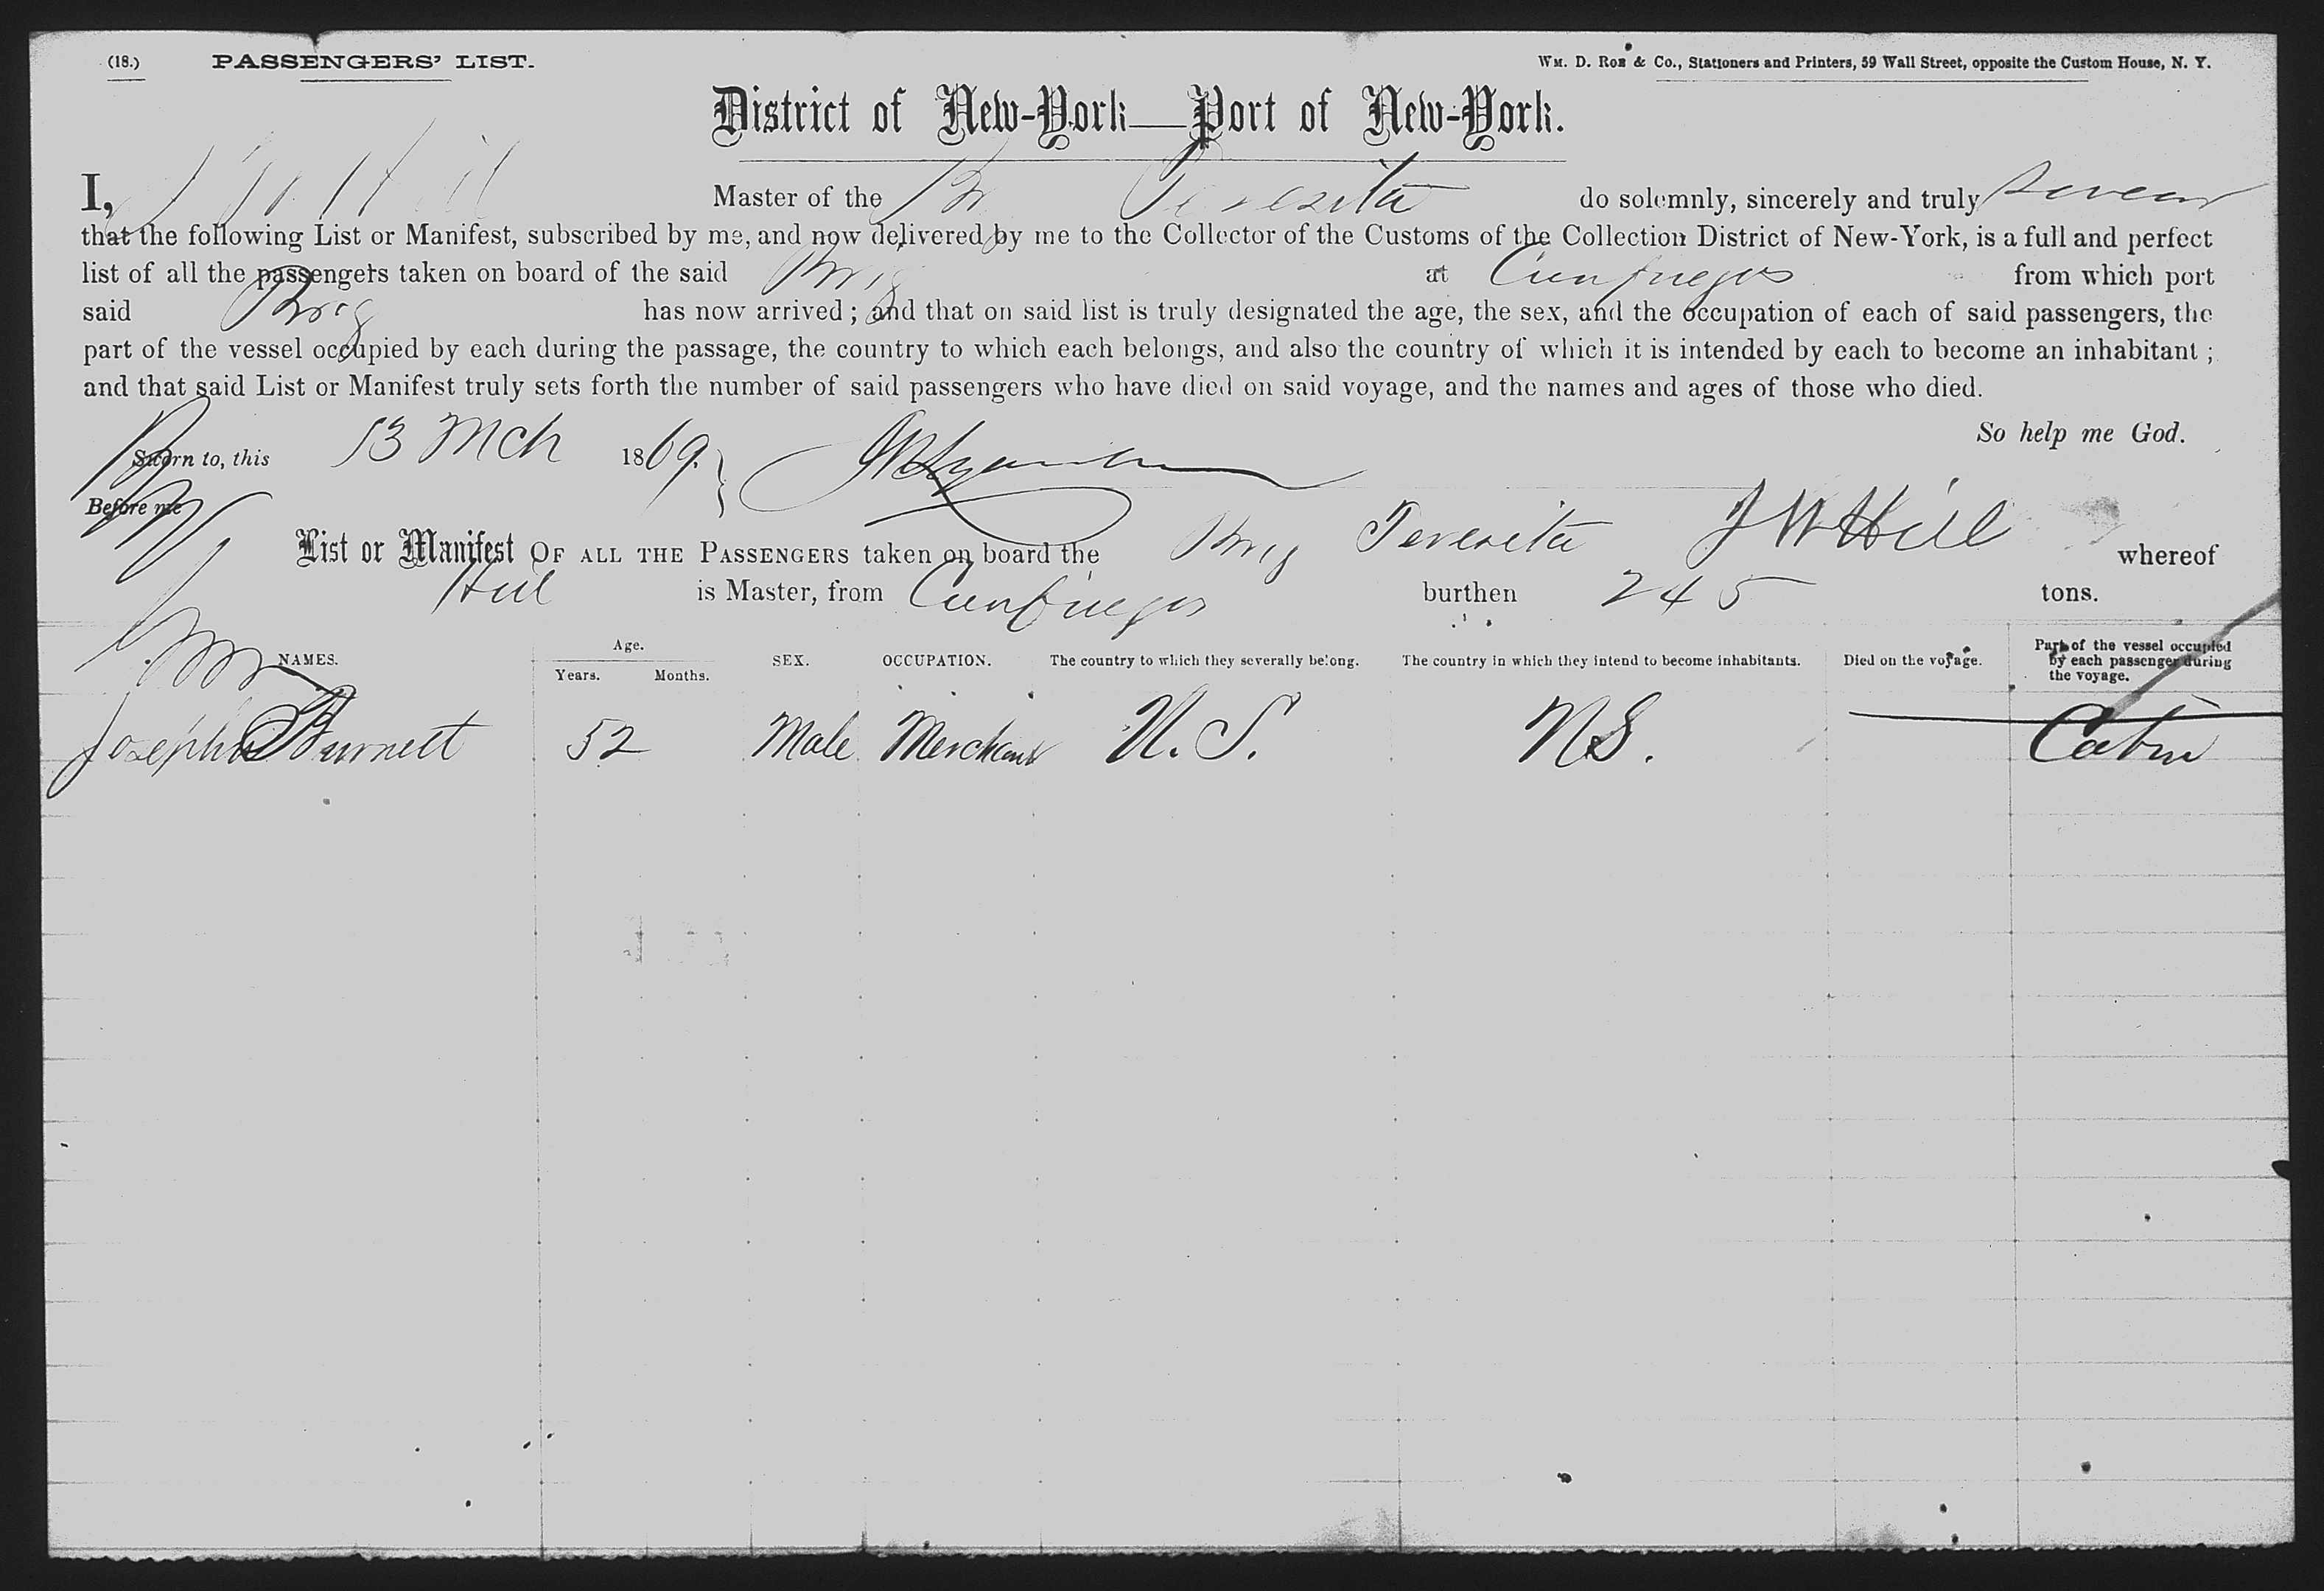 (18.) PASSENGERS' LIST. Wm. D. Roe & Co., Stationers and Printers, 59 Wall Street, opposite the Custom House, N. Y.
District of New-York—Port of New-York.
I, J W Hill Master of the Br Teresita do solemnly, sincerely and truly swear
that the following List or Manifest, subscribed by me, and now delivered by me to the Collector of the Customs of the Collection District of New-York, is a full and perfect
list of all the passengers taken on board of the said Brig at Cienfuegos from which port
said Brig has now arrived; and that on said list is truly designated the age, the sex, and the occupation of each of said passengers, the
part of the vessel occupied by each during the passage, the country to which each belongs, and also the country of which it is intended by each to become an inhabitant;
and that said List or Manifest truly sets forth the number of said passengers who have died on said voyage, and the names and ages of those who died.
So help me God.
Sworn to, this 13 Mch 1869.
Before me J W Hill
List or Manifest OF ALL THE PASSENGERS taken on board the Brig Teresita whereof
Hill is Master, from Cienfuegos burthen 245 tons.
NAMES. Age. Years. Months. SEX. OCCUPATION. The country to which they severally belong. The country in which they intend to become inhabitants. Died on the voyage. Part of the vessel occupied by each passenger during the voyage.
Joseph Burnett 52 Male Merchant U. S. U S. Cabin